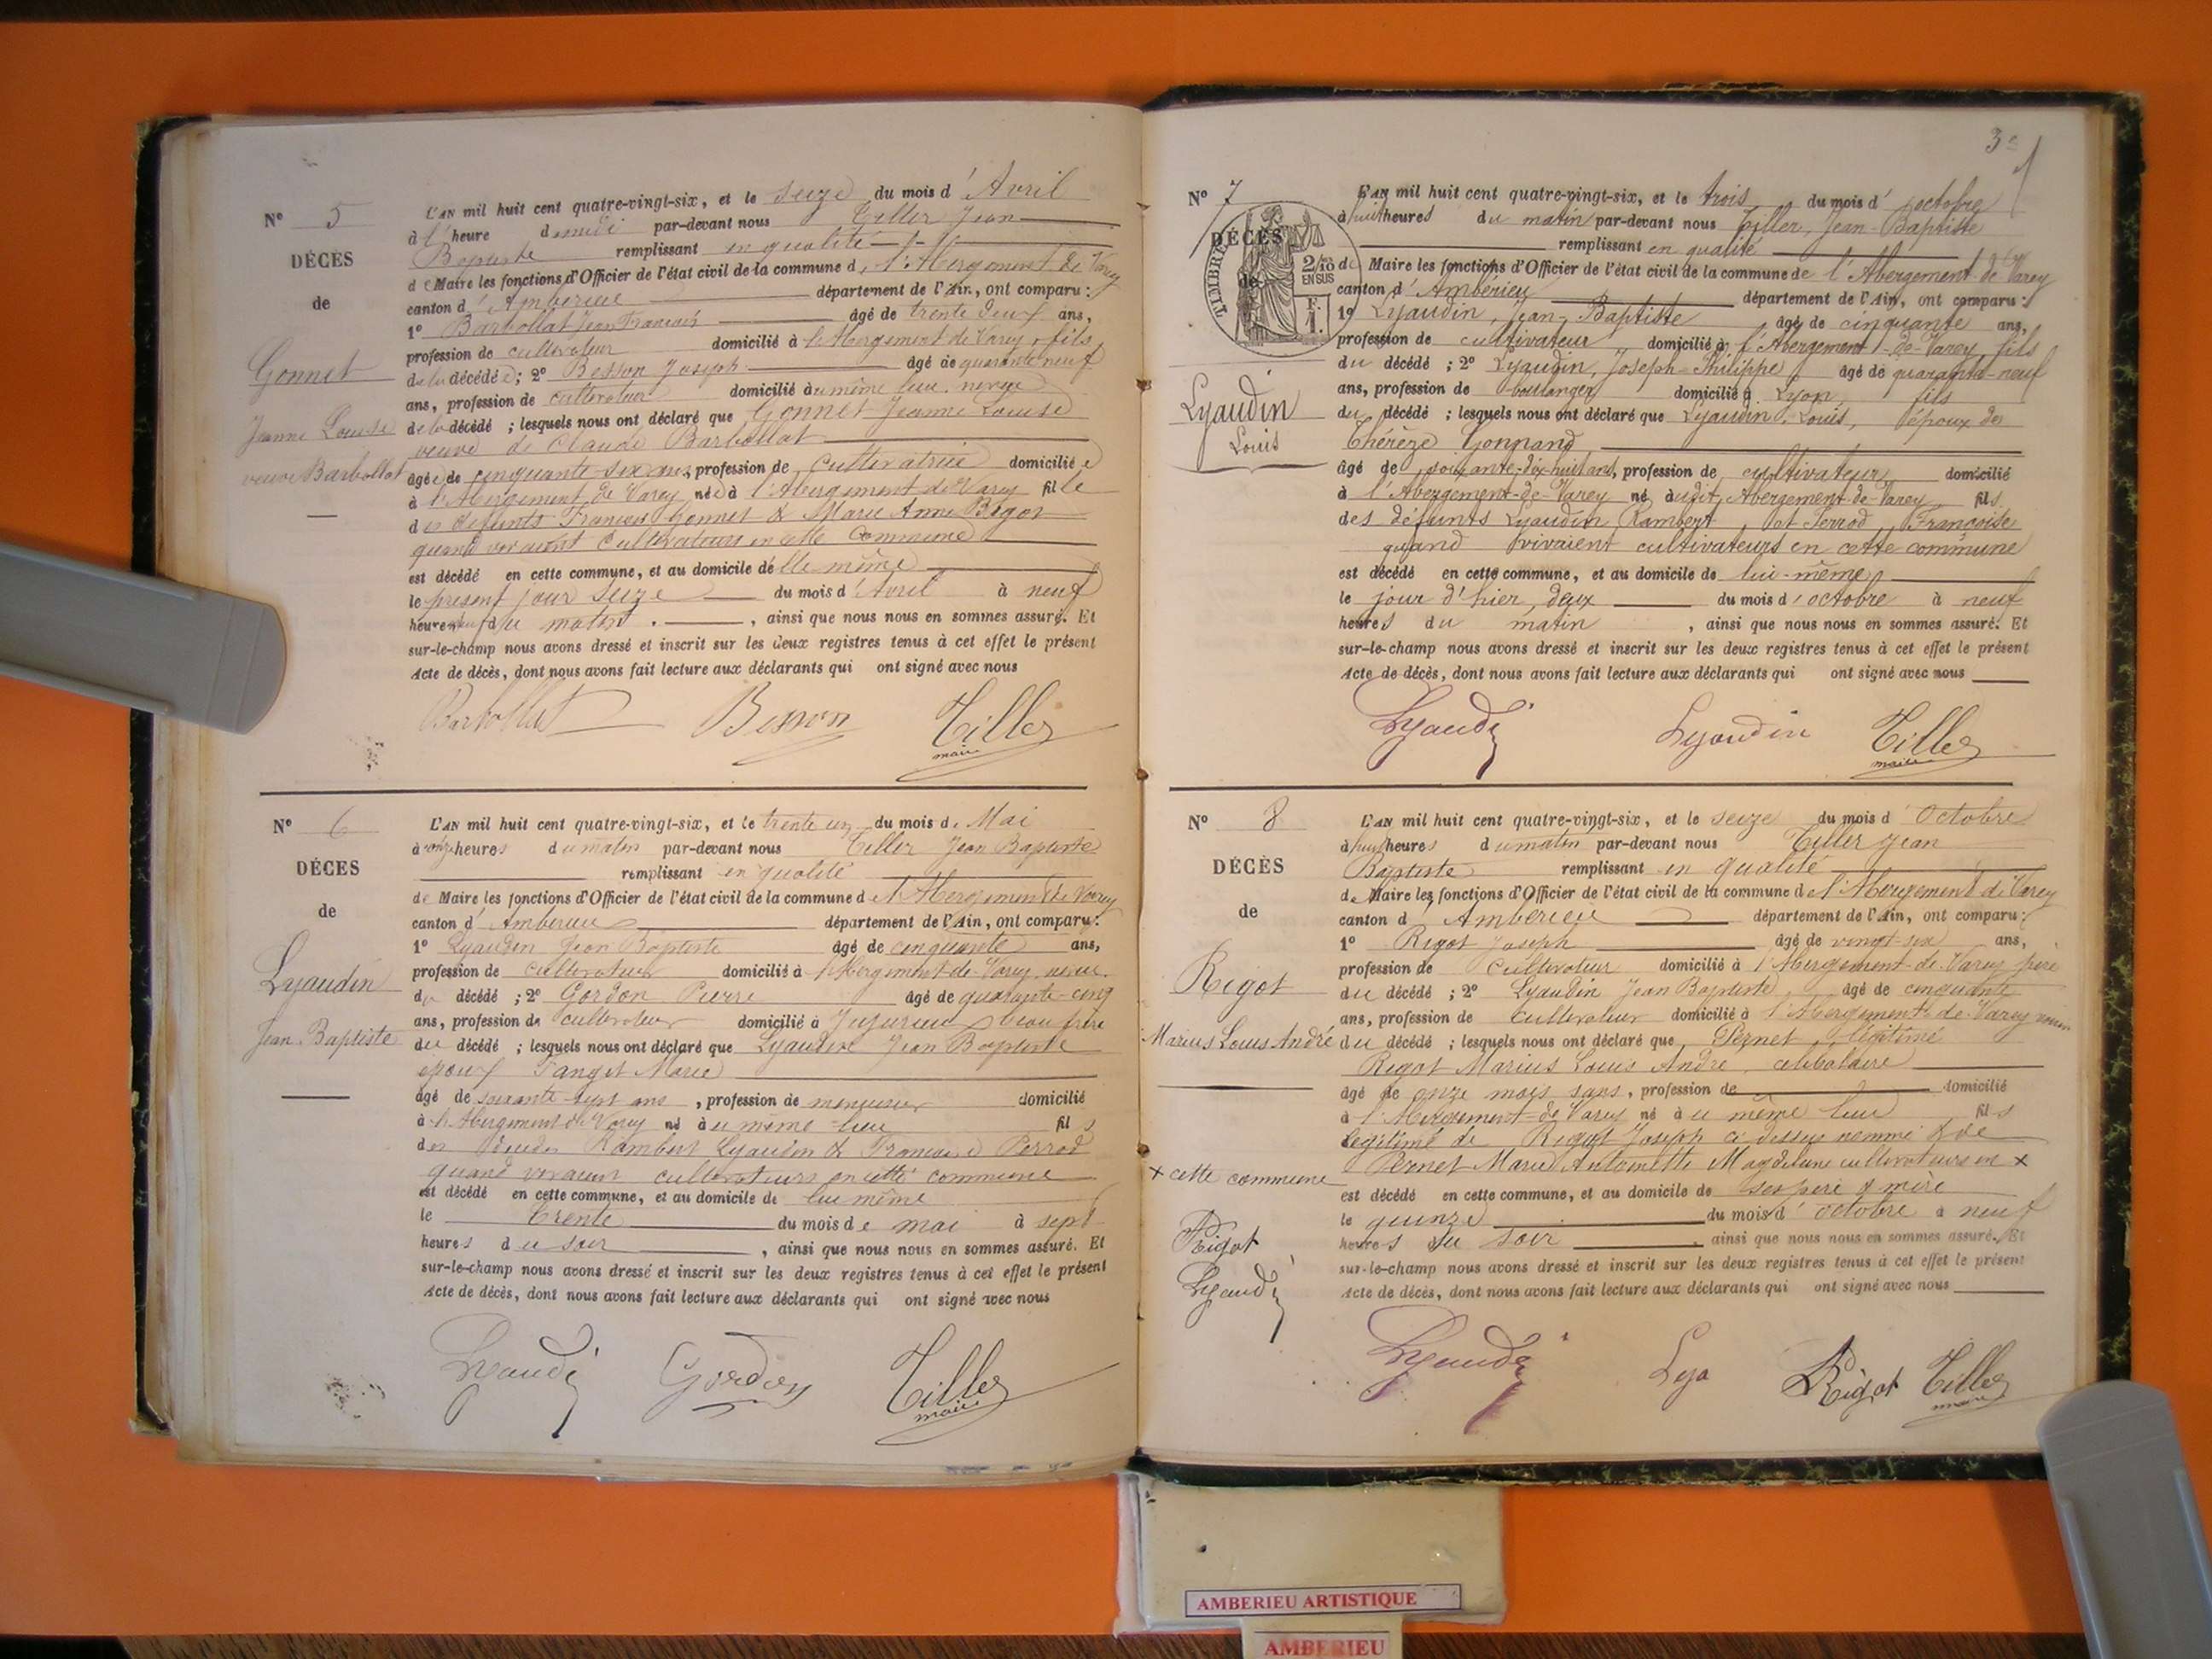 Nº 5
DÉCÈS
de
Gonnet
Jeanne Louise
veuve Barbollat
L'AN mil huit cent quatre-vingt-six, et le seize du mois d'Avril
à l' heure de midi par-devant nous Tiller Jean
Baptiste remplissant en qualité
de Maire les fonctions d'Officier de l'état civil de la commune de l'Abergement de Varey
canton d'Ambérieu département de l'Ain, ont comparu :
1º Barbollat Jean Francois âgé de trente deux ans,
profession de cultivateur domicilié à l'Abergement de Varey, fils
de la décédée; 2º Besson Joseph âgé de quarante neuf
ans, profession de cultivateur domicilié au même lieu neveu
de la décédé ; lesquels nous ont déclaré que Gonnet Jeanne Louise
veuve de Claude Barbollat
âgée de cinquante-six ans, profession de cultivatrice domiciliée
à l'Abergement de Varey née à l'Abergement de Varey fille
des défunts Francois Gonnet & Marie Anne Bigot
quand vivaient cultivateurs en cette Commune
est décédé en cette commune, et au domicile d'elle même
le présent jour seize du mois d'Avril à neuf
heures du matin, ainsi que nous nous en sommes assuré. Et
sur-le-champ nous avons dressé et inscrit sur les deux registres tenus à cet effet le présent
Acte de décès, dont nous avons fait lecture aux déclarants qui ont signé avec nous
Barbollat Besson Tiller
maire
Nº 6
DÉCES
de
Lyaudin
Jean Baptiste
L'AN mil huit cent quatre-vingt-six, et le trente un du mois de Mai
à onze heures du matin par-devant nous Tiller Jean Baptiste
remplissant en qualité
de Maire les fonctions d'Officier de l'état civil de la commune de l'Abergement de Varey
canton d'Ambérieu département de l'Ain, ont comparu :
1º Lyaudin Jean Baptiste âgé de cinquante ans,
profession de cultivateur domicilié à l'Abergement-de-Varey neveu
du décédé ; 2º Gordon Pierre âgé de quarante-cinq
ans, profession de cultivateur domicilié à Jujurieux beau frère
du décédé ; lesquels nous ont déclaré que Lyaudin Jean Baptiste
époux Tanget Marie
âgé de soixante-sept ans, profession de menuisier domicilié
à l'Abergement de Varey né au même lieu fils
des Rambert Lyaudin & Francoise Perrod
quand vivaient cultivateurs en cette commune
est décédé en cette commune, et au domicile de lui même
le trente du mois de mai à sept
heures du soir, ainsi que nous nous en sommes assuré. Et
sur-le-champ nous avons dressé et inscrit sur les deux registres tenus à cet effet le présent
Acte de décès, dont nous avons fait lecture aux déclarants qui ont signé avec nous
Lyaudi Gordon Tiller
maire
3e
Nº 7
DÉCÈS
de
TIMBRE
2/10
EN SUS
F.
1.
Lyaudin
Louis
L'AN mil huit cent quatre-vingt-six, et le trois du mois d'octobre
à huit heures du matin par-devant nous Tiller, Jean-Baptiste
remplissant en qualité
de Maire les fonctions d'Officier de l'état civil de la commune de l'Abergement-de-Varey
canton d'Ambérieu département de l'Ain, ont comparu :
1º Lyaudin, Jean-Baptiste âgé de cinquante ans,
profession de cultivateur domicilié à l'Abergement-de-Varey, fils
du décédé ; 2º Lyaudin, Joseph-Philippe âgé de quarante-neuf
ans, profession de boulanger domicilié à Lyon, fils
du décédé ; lesquels nous ont déclaré que Lyaudin, Louis, époux de
Thérèze Gonnand
âgé de soixante-dix-huit ans, profession de cultivateur domicilié
à l'Abergement-de-Varey né audit Abergement-de-Varey fils
des défunts Lyaudin Rambert, et Perrod, Françoise
quand vivaient cultivateurs en cette commune
est décédé en cette commune, et au domicile de lui-même
le jour d'hier, deux du mois d'octobre à neuf
heures du matin, ainsi que nous nous en sommes assuré. Et
sur-le-champ nous avons dressé et inscrit sur les deux registres tenus à cet effet le présent
Acte de décès, dont nous avons fait lecture aux déclarants qui ont signé avec nous
Lyaudi Lyaudin Tiller
maire
Nº 8
DÉCÈS
de
Rigot
Marius Louis André
x cette commune
Rigot
Lyaudi
L'AN mil huit cent quatre-vingt-six, et le seize du mois d'Octobre
à huit heures du matin par-devant nous Tiller Jean
Baptiste remplissant en qualité
de Maire les fonctions d'Officier de l'état civil de la commune de l'Abergement de Varey
canton d'Ambérieu département de l'Ain, ont comparu :
1º Rigot Joseph âgé de vingt-six ans,
profession de cultivateur domicilié à l'Abergement-de-Varey père
du décédé ; 2º Lyaudin Jean Baptiste âgé de cinquante
ans, profession de cultivateur domicilié à l'Abergement-de-Varey
du décédé ; lesquels nous ont déclaré que Pernet légitimé
Rigot Marius Louis André célibataire
âgé de onze mois sans, profession de domicilié
à l'Abergement-de Varey né au même lieu fils
légitimé de Rigot Joseph ci dessus nommé & de
Pernet Marie Antoinette Magdeleine cultivateurs en x
est décédé en cette commune, et au domicile de ses père & mère
le quinze du mois d'octobre à neuf
heures du soir, ainsi que nous nous en sommes assuré. Et
sur-le-champ nous avons dressé et inscrit sur les deux registres tenus à cet effet le présent
Acte de décès, dont nous avons fait lecture aux déclarants qui ont signé avec nous
Lyaudi Lya Rigot Tiller
maire
AMBERIEU ARTISTIQUE
AMBERIEU